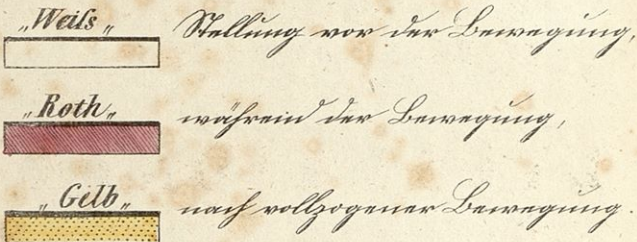 „Weiſs„ Stellung vor der Bewegung,
„Roth„ während der Bewegung,
„Gelb„ nach vollzogener Bewegung.